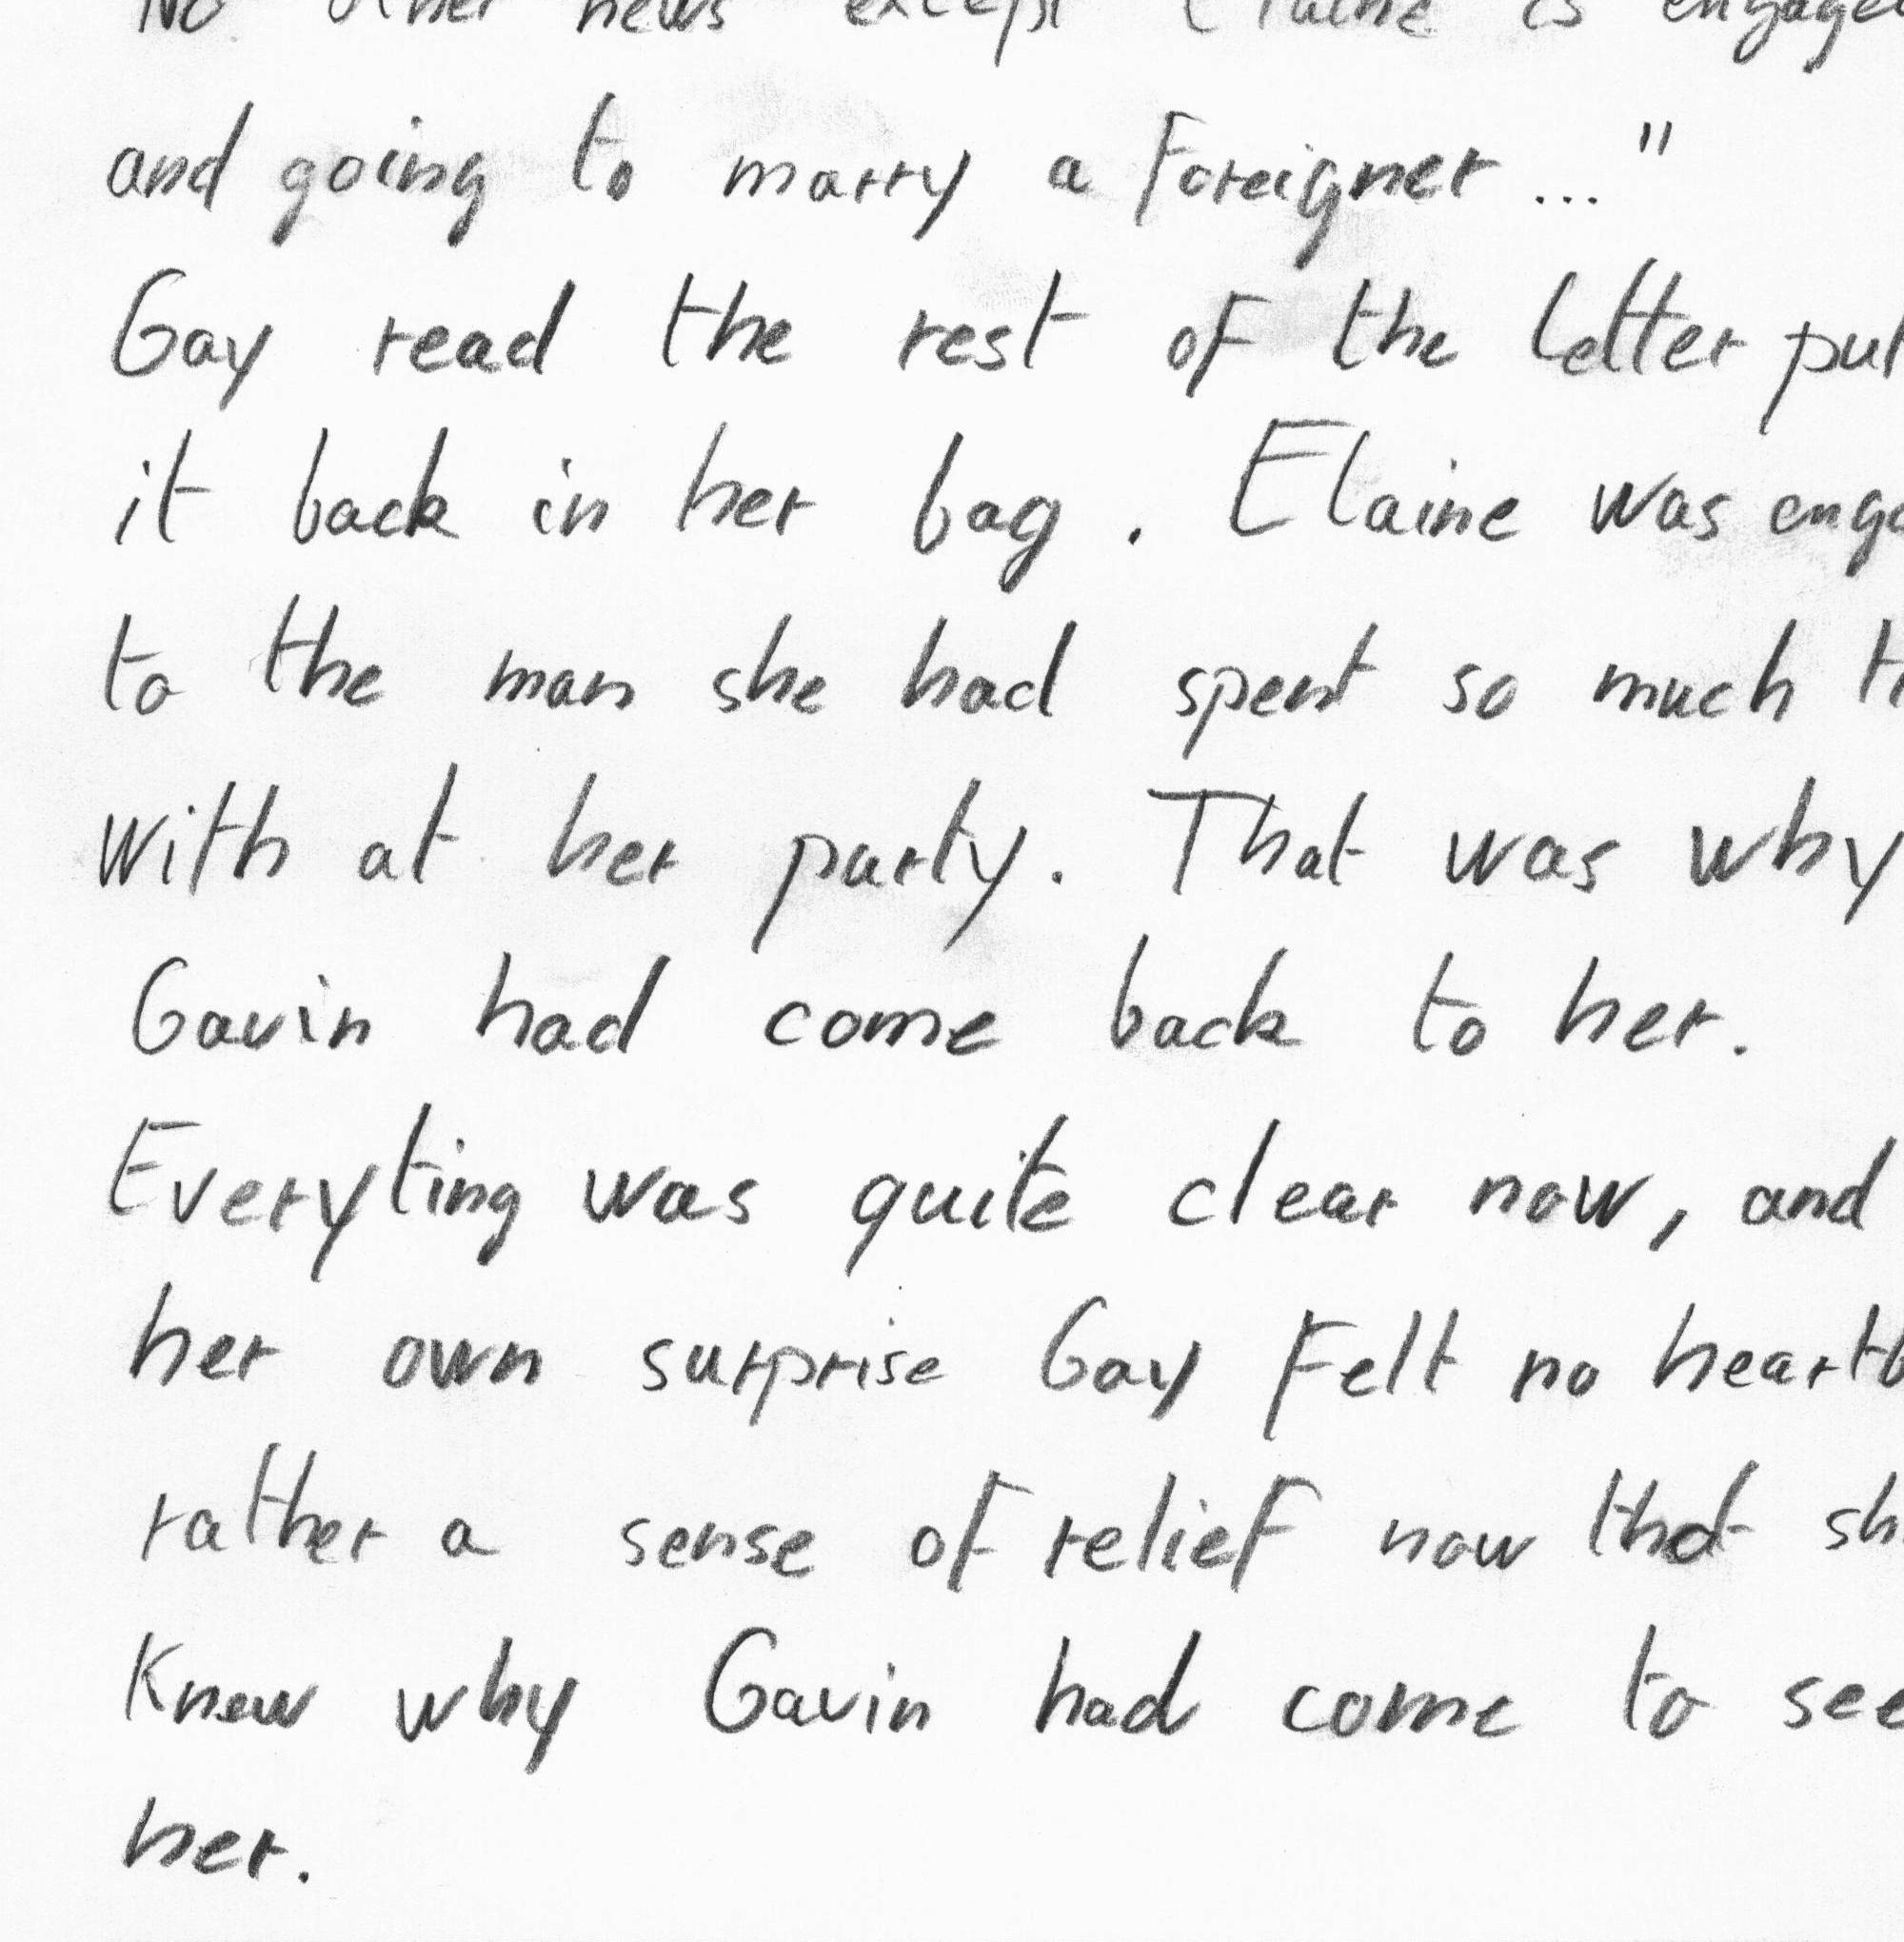 No other news except Elaine is engaged
and going to marry a Foreigner ..."
Gay read the rest of the letter put
it back in her bag. Elaine was
to the man she had spent so much
with at her party. That was why
Gavin had come back to her.
Everyting was quite clear now, and
her own surprise Gay Felt no
rather a sense of relief now that
Knew why Gavin had come to see
her.